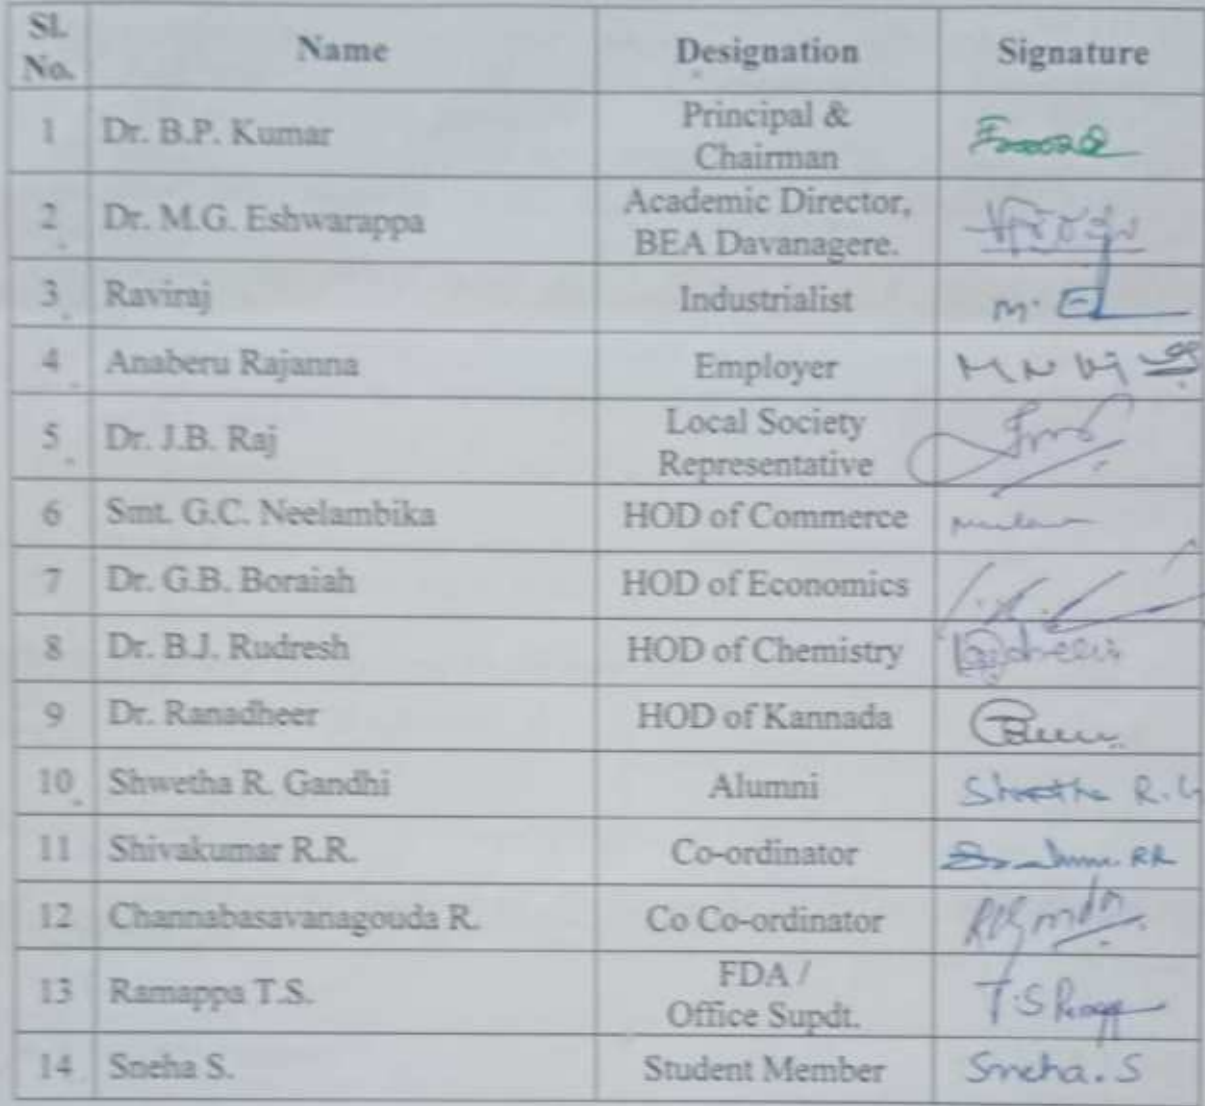 Sl. No. Name Designation Signature
1 Dr. B.P. Kumar Principal & Chairman
2 Dr. M.G. Eshwarappa Academic Director, BEA Davanagere.
3 Raviraj Industrialist
4 Anaberu Rajanna Employer
5 Dr. J.B. Raj Local Society Representative
6 Smt. G.C. Neelambika HOD of Commerce
7 Dr. G.B. Boraiah HOD of Economics
8 Dr. B.J. Rudresh HOD of Chemistry
9 Dr. Ranadheer HOD of Kannada
10 Shwetha R. Gandhi Alumni
11 Shivakumar R.R. Co-ordinator
12 Channabasavanagouda R. Co Co-ordinator
13 Ramappa T.S. FDA / Office Supdt. T.S
14 Sneha S. Student Member Sneha. S